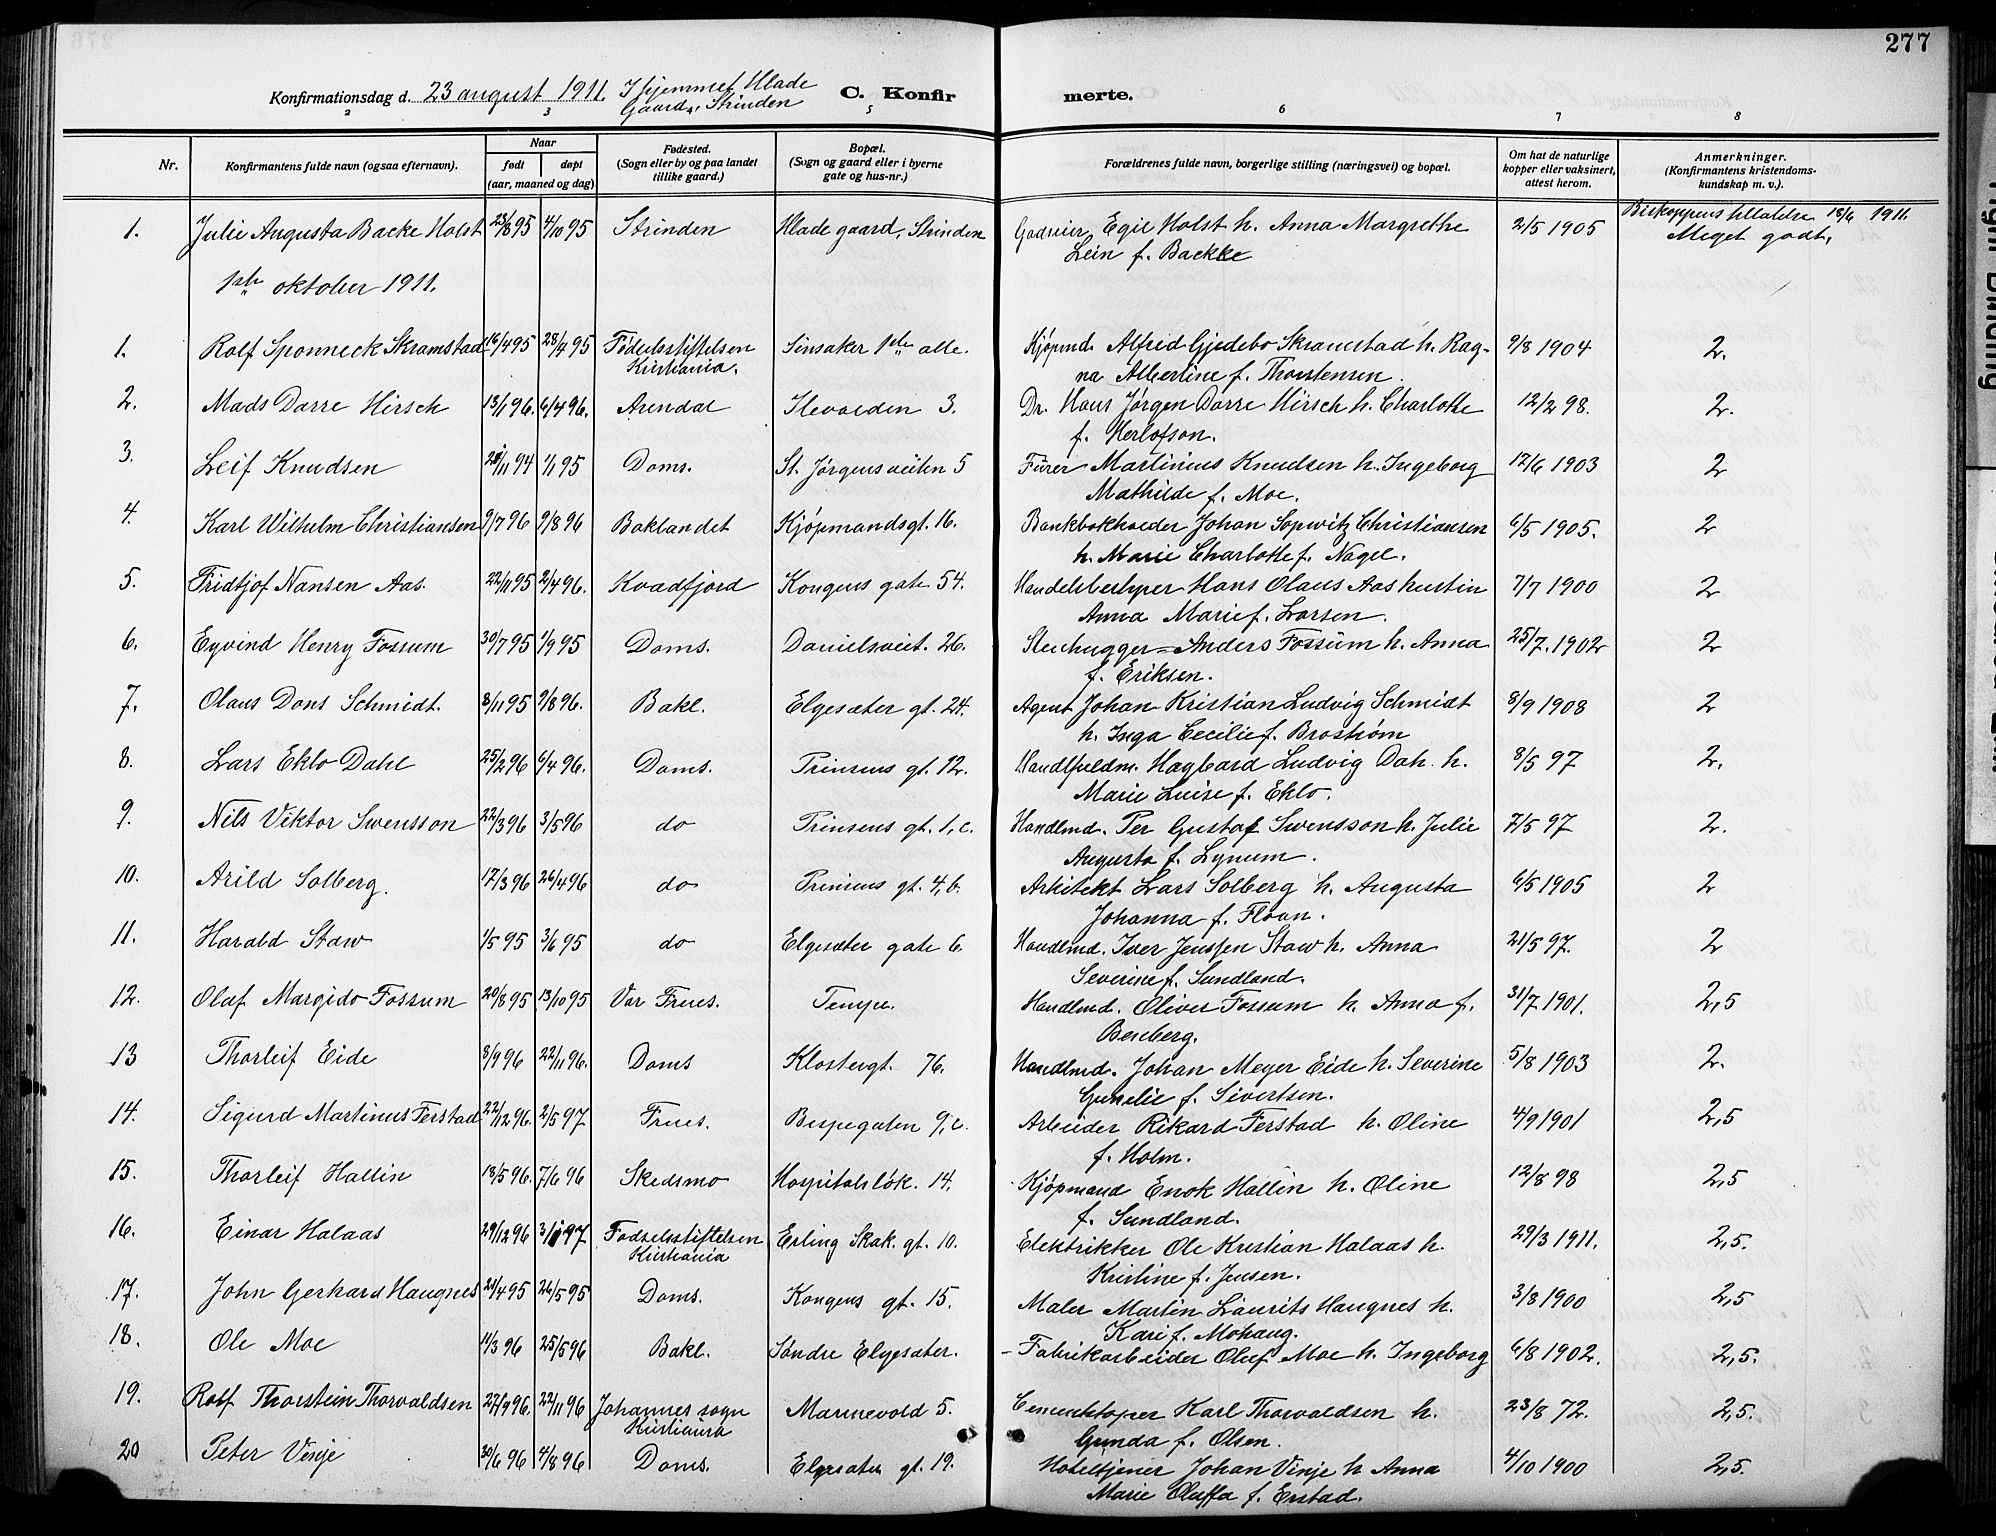 277
Konfirmationsdag d. 23 august 1911. I hjemmet Hlade
Gaard, Strinden
C. Konfirmerte.
2 3 5 6 7 8
Nr. Konfirmantens fulde navn (ogsaa efternavn). Naar født døpt (aar, maaned og dag) Fødested. (Sogn eller by og paa landet tillike gaard.) Bopæl. (Sogn og gaard eller i byerne gate og hus-nr.) Forældrenes fulde navn, borgerlige stilling (næringsvei) og bopæl. Om hat de naturlige kopper eller vaksinert, attest herom. Anmerkninger. (Konfirmantens kristendomskundskap m. v.).
1. Julie Augusta Backe Holst 23/8 95 4/10 95 Strinden Hlade gaard, Strinden Godseier Egil Holst h. Anna Margrethe 2/5 1905 Biskoppens tilladelse 18/6 1911.
Lein f. Backke Meget godt.
1ste oktober 1911.
1. Rolf Sponneck Skramstad 16/4 95 28/4 95 Fødselsstiftelsen Sinsaker 1ste alle. Kjøpmd. Alfred Gjedebo Skramstad h. Rag- 9/8 1904 2.
Kristiania. na Albertine f. Thorstensen.
2. Mads Darre Hirsch 13/1 96. 6/4 96. Arendal Ilevolden 3. Dr. Hans Jørgen Darre Hirsch h. Charlotte 12/2 98. 2.
f. Herlofson.
3. Leif Knudsen /11 94 1/1 95 Doms. St. Jørgensveiten 5 Furer Martinius Knudsen h. Ingeborg 12/6 1903 2
Mathilde f. Moe.
4. Karl Wilhelm Christiansen 9/7 96 9/8 96 Baklandet Kjøpmandsgt. 16. Bankbokholder Johan Sopwitz Christiansen 6/5 1905. 2
h. Marie Charlotte f. Nagel.
5. Fridtjof Nansen Aas. 22/11 95 2/4 96. Kvadfjord Kongens gate 54. Handelsbestyrer Hans Olaus Aas hustru 7/7 1900 2
Anna Marie f. Larsen.
6. Eyvind Henry Fossum 30/7 95 1/9 95 Doms. Danielsveit. 26. Stenhugger Anders Fossum h. Anna 25/7. 1902 2
f. Eriksen.
7. Olaus Dons Schmidt. 8/11 95 9/8 96. Bakl. Elgesæter gt. 24. Agent Johan Kristian Ludvig Schmidt 8/9 1908 2
h. Inga Cecilie f. Brostrøm
8. Lars Eklo Dahl 25/2 96 6/4 96. Doms. Prinsens gt. 12. Handlfuldm. Hagbard Ludvig Dah. h. 8/5 97 2.
Marie Luise f. Eklo.
9. Nils Viktor Svensson 22/3 96 3/5 96 do Prinsens gt. 1, c. Handlmd. Per Gustaf Svensson h. Julie 7/5 97 2.
Augusta f. Lynum.
10. Arild Solberg. 17/3 96 26/4 96 do Prinsens gt. 4, b. Arkitekt Lars Solberg h. Augusta 6/5 1905 2
Johanna f. Floan.
11. Harald Staw 1/5 95 3/6 95 do Elgesæter gate 6. Handlmd. Iver Jenssen Staw h. Anna 21/5 97. 2
Severine f. Sundland.
12. Olaf Margido Fossum 20/8 95 13/10 95 Vor Frues. Tempe. Handlmd. Oliver Fossum h. Anna f. 31/7 1901. 2,5
Benberg.
13 Thorleif Eide 8/9 96 22/11 96. Doms Klostergt. 76. Handlmd. Johan Meyer Eide h. Severine 5/8 1903 2.
Gunelie f. Sivertsen.
14. Sigurd Martinus Ferstad 22/12 96. 2/5 97 Frues. Bispegaten 9, c. Arbeider Rikard Ferstad h. Oline 4/9 1901 2,5
f. Holm.
15. Thorleif Hallin 18/5 96. 7/6 96 Skedsmo Hospitalsløk. 14. Kjøpmand Enok Hallin h. Oline 12/8 98 2,5
f. Sundland.
16. Einar Halaas 29/12 96 3/1 97 Fødselsstiftelsen Erling Skak. gt. 10. Elektrikker Ole Kristian Halaas h. 29/3 1911. 2,5.
Kristiania Kristine f. Jensen.
17. John Gerhard Haugnes 21/4 95 26/5 95 Doms. Kongens gt. 15. Maler Martin Laurits Haugnes h. 3/8 1900 2,5
Kari f. Mohaug.
18. Ole Moe 11/3 96 25/5 96 Bakl. Søndre Elgesæter. Fabrikarbeider Oluf Moe h. Ingeborg 6/8 1902. 2,5.
19. Rolf Thorstein Thorvaldsen 27/9 96. 22/11 96 Johannes sogn Marinevold 5. Cementstøper Karl Thorvaldsen h. 23/8 72. 2,5.
Kristiania Gunda f. Olsen.
20 Peter Vinje 30/6 96 4/8 96 Doms. Elgesæter gt. 19. Hoteltjener Johan Vinje h. Anna 4/10 1900 2,5.
Marie Oluffa f. Erstad.